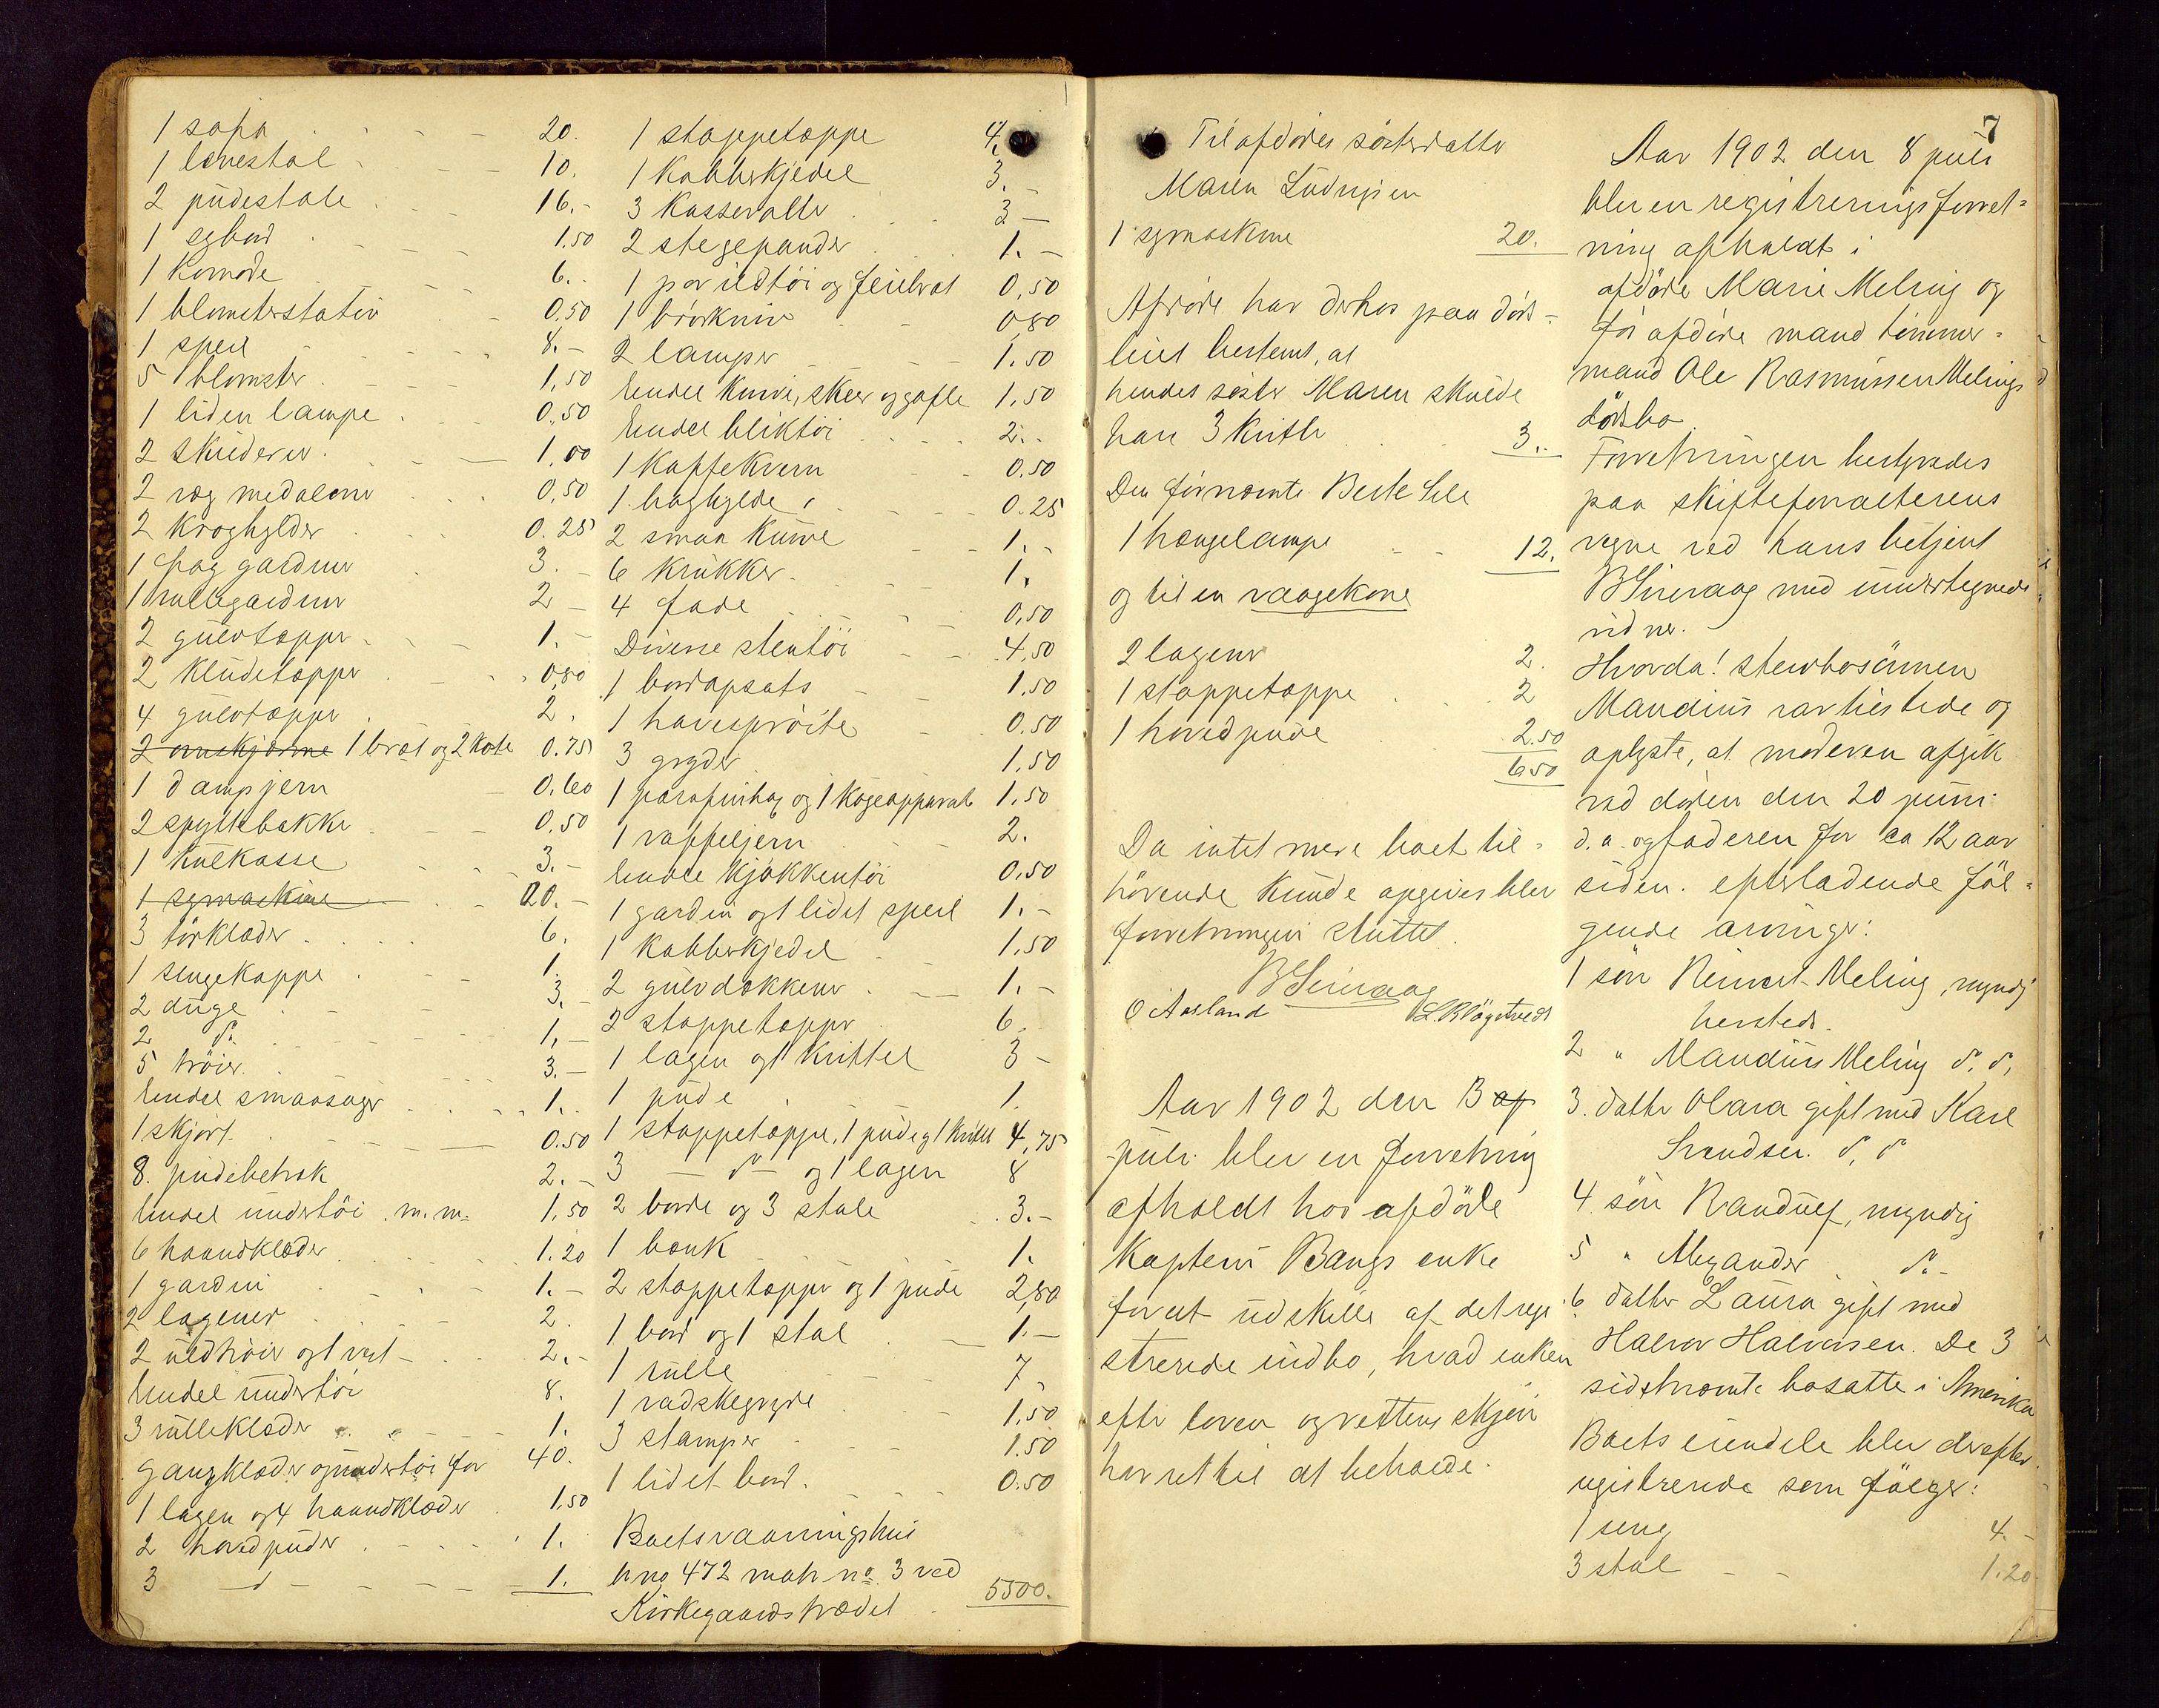 1 sofa 20.
1 lænestol 10.
2 pudestole 16.-
1 sybord 1.50
1 Komode 6.
1 blomsterstativ 0.50
1 speil 8.-
5 blomster 1.50
1 liden lampe 0.50
2 skilderier 1.00
2 væg medaloner 0.50
2 kroghylder 0.25
1 fag gardiner 3.
1 rullegardiner 2
2 gulvtæpper 1.-
2 kludetæpper 0,80
4 gulvtæpper 2.
2 ovnskjærme 1 bræt og 2 kost 0.75
1 dampjern 0.60
2 spyttebakker 0.50
1 kulkasse 3.-
1 symaskine 20.-
3 tørklæder 6.
1 sengekappe 1.
2 duge 3.-
2 do. 1.-
5 trøier 3.-
Endel smaasager 1.
1 skjørt 0.50
8. pudebetræk 2.-
Endel undertöi m.m. 1.50
6 haandklæder 1.20
1 gardin 1.-
2 lagener 2.
2 uldtrøier og 1 vest 2.-
Endel undertöi 8.
3 rulleklæder 1.
Gangklæder og undertøi for 40.
1 lagen og 4 haandklæder 1.50
2 hovedpuder 1.
3 -d- 1.
1 stoppetæppe 4.
1 kobberkjedel 3.-
3 kasseroller 3-
2 stegepander 1.-
1 par ildtöi og feiebræt 0.50
1 brødkniv 0,80
2 lamper 1.50
Endel knive, skeer og gafle 1.50
Endel bliktöi 2.
1 kaffekvern 0.50
1 boghylde 0.25
2 smaa kurve 1.-
6 krukker 1.
4 fade 0,50
Diverse stentöi 4.50
1 bordopsats 1.50
1 havesprøite 0.50
3 gryder 1.50
1 parafinhag og 1 kogeapparat 1.50
1 vaffeljern 2.
Endel kjøkkentöi 0.50
1 gardin og 1 lidet speil 1.-
1 kobberkjedel 1.50
2 gulvdækkener 1.-
2 stoppetæpper 6.
1 lagen og 1 knittel 3-
1 pude 1.
1 stoppetæppe, 1 pude og 1 knittel 4,75
3 -do- og 1 lagen 8
2 borde og 3 stole 3.-
1 bænk 1.
2 stoppetæpper og 1 pude 2,80
1 bord og 1 stol 1.-
1 rulle 7.
1 vadskegryde 1.50
3 stamper 1.50
1 lidet bord 0.50
Boets vaaningshus
h no 472 matr no. 3 ved
Kirkegaardstrædet 5500.
Til afdødes søsterdatter
Maren Ludvigsen
1 symaskine 20.
Afdøde har derhos paa døds-
leiet bestemt, at
hendes søster Maren skulde
have 3 knitler 3.
Den förnævnte Berte Sele
1 hængelampe 12.
og til en vaagekone
2 lagener 2.
1 stoppetæppe 2
1 hovedpude 2.50
6.50
Da intet mere boet til-
hørende kunde opgives blev
forretningen sluttet.
B Sirevaag
O Aarland
Aar 1902 den 3 af
juli blev en forretning
afholdt hos afdøde
Kaptein Bangs enke
for at udskille af det regi-
strerede indbo, hvad enken
efter loven og rettens skjøn
har ret til at beholde.
7
Aar 1902 den 8 juli
blev en registreringsforret-
ning afholdt i
afdøde Marie Meling og
før afdøde mand tømmer-
mand Ole Rasmussen Melings
dødsbo.
Forretningen bestyredes
paa skifteforvalterens
vegne ved hans betjent
B Sirevaag med undertegnede
vidner.
Hvorda! stervbosønnen
Maudius var tilstede og
oplyste, at moderen afgik
ved døden den 20 juni
d.a. og faderen for ca 12 aar
siden. efterladende föl-
gende arvinger:
1 søn Reinert Meling, myndig
hersteds.
2 " Maudius Meling do. do.
3. datter Olava gift med Karl
Svendsen. do. do
4 søn Randulf, myndig
5 " Alexander do.-
6 datter Laura gift med
Halvor Halvorsen. De 3
sidstnævnte bosatte i Amerika
Boets eiendele blev derefter
registrerede som følger:
1 seng 4.-
3 stol 1.20